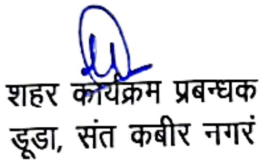 शहर कार्यक्रम प्रबन्धक
डूडा, संत कबीर नगरं